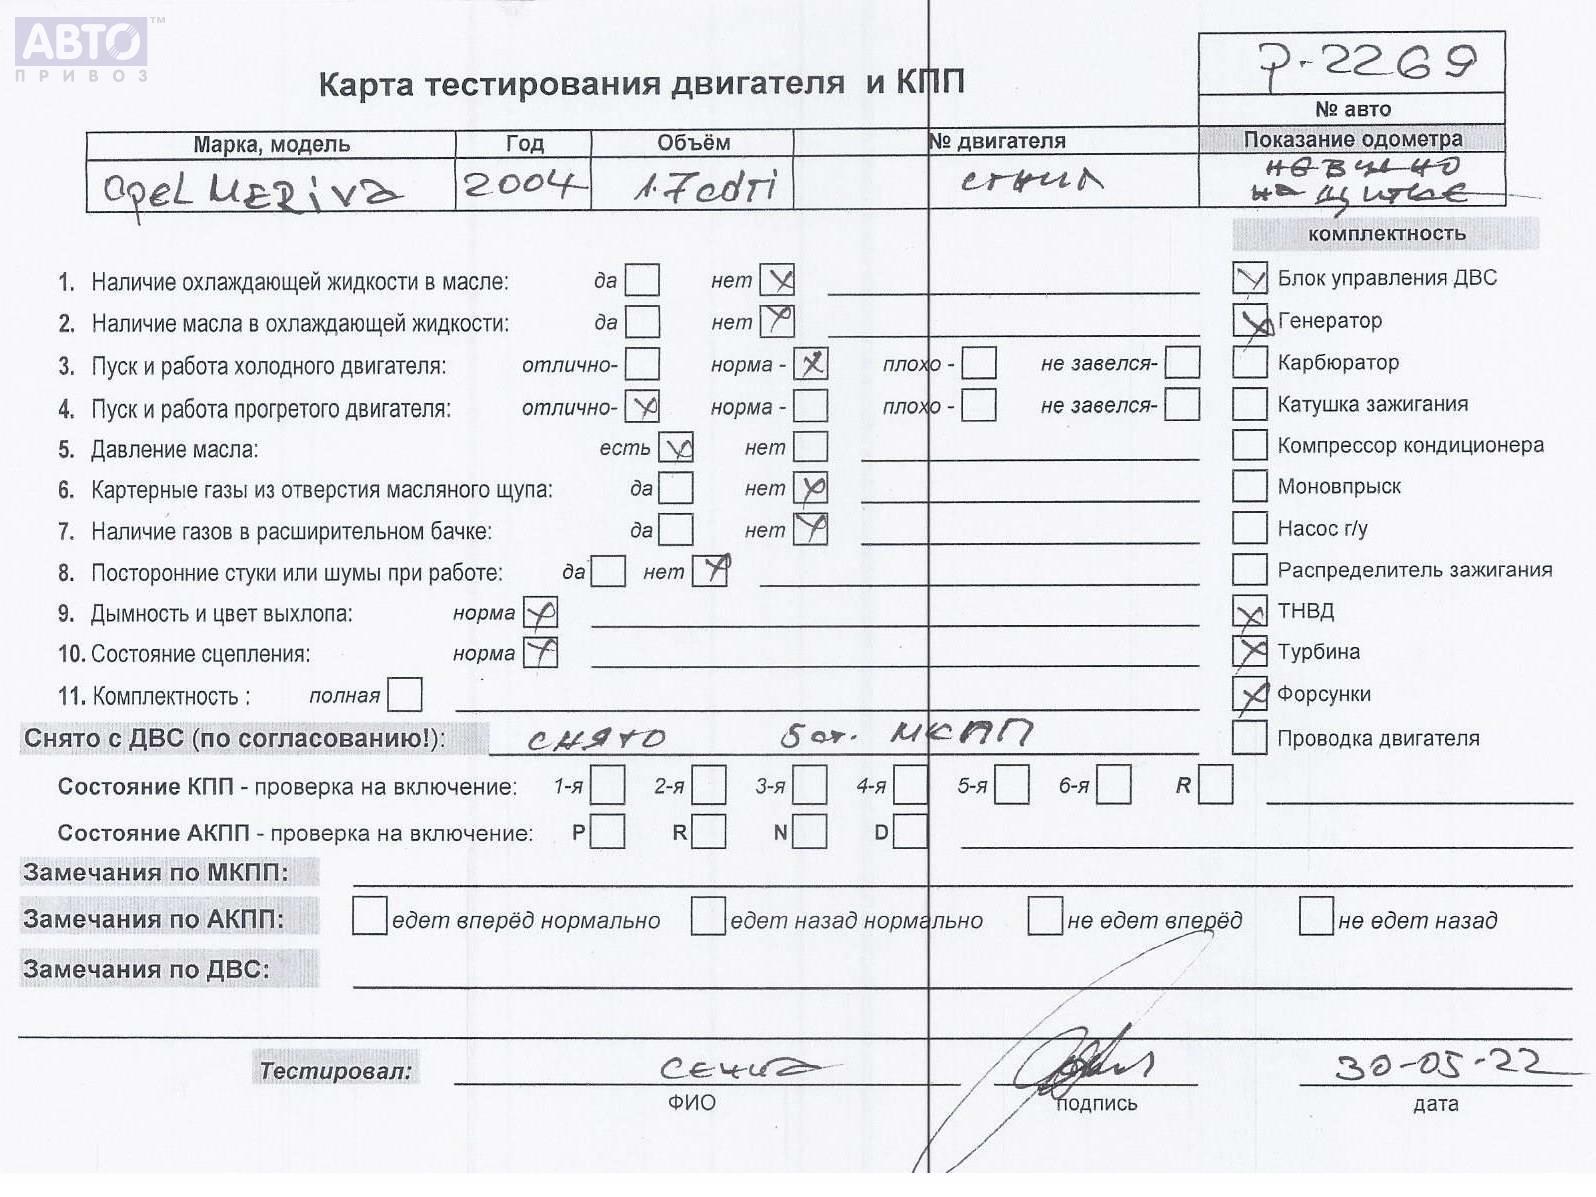 АВТО™
ПРИВОЗ
Карта тестирования двигателя и КПП
P-2269
№ авто
Марка, модель Год Объём № двигателя Показание одометра
Opel MERiva 2004 1.7cdti сгнил не видно
на щитке
комплектность
1. Наличие охлаждающей жидкости в масле: да нет x Блок управления ДВС
2. Наличие масла в охлаждающей жидкости: да нет x Генератор
3. Пуск и работа холодного двигателя: отлично- норма - x плохо - не завелся- Карбюратор
4. Пуск и работа прогретого двигателя: отлично- x норма - плохо - не завелся- Катушка зажигания
5. Давление масла: есть x нет Компрессор кондиционера
6. Картерные газы из отверстия масляного щупа: да нет x Моновпрыск
7. Наличие газов в расширительном бачке: да нет x Насос г/у
8. Посторонние стуки или шумы при работе: да нет x Распределитель зажигания
9. Дымность и цвет выхлопа: норма x ТНВД
10. Состояние сцепления: норма x Турбина
11. Комплектность : полная Форсунки
Снято с ДВС (по согласованию!): снято 5 ст. МКПП Проводка двигателя
Состояние КПП - проверка на включение: 1-я 2-я 3-я 4-я 5-я 6-я R
Состояние АКПП - проверка на включение: P R N D
Замечания по МКПП:
Замечания по АКПП: едет вперёд нормально едет назад нормально не едет вперёд не едет назад
Замечания по ДВС:
Тестировал: 30-05-22
ФИО подпись дата